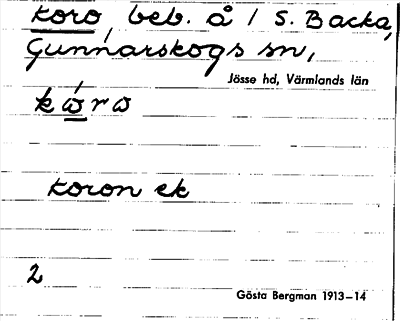 Koro, beb. å / S. Backa,
Gunnarskogs sn,
Jösse hd, Värmlands län
kώrω
Koron ek
2
Gösta Bergman 1913–14